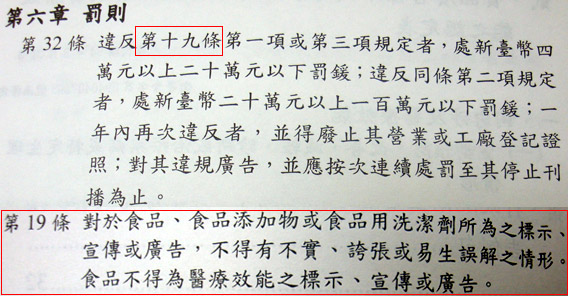 第六章 罰則
第 32 條 違反第十九條第一項或第三項規定者，處新臺幣四
萬元以上二十萬元以下罰鍰；違反同條第二項規定
者，處新臺幣二十萬元以上一百萬元以下罰鍰；一
年內再次違反者，並得廢止其營業或工廠登記證
照；對其違規廣告，並應按次連續處罰至其停止刊
播為止。
第 19 條 對於食品、食品添加物或食品用洗潔劑所為之標示、
宣傳或廣告，不得有不實、誇張或易生誤解之情形。
食品不得為醫療效能之標示、宣傳或廣告。